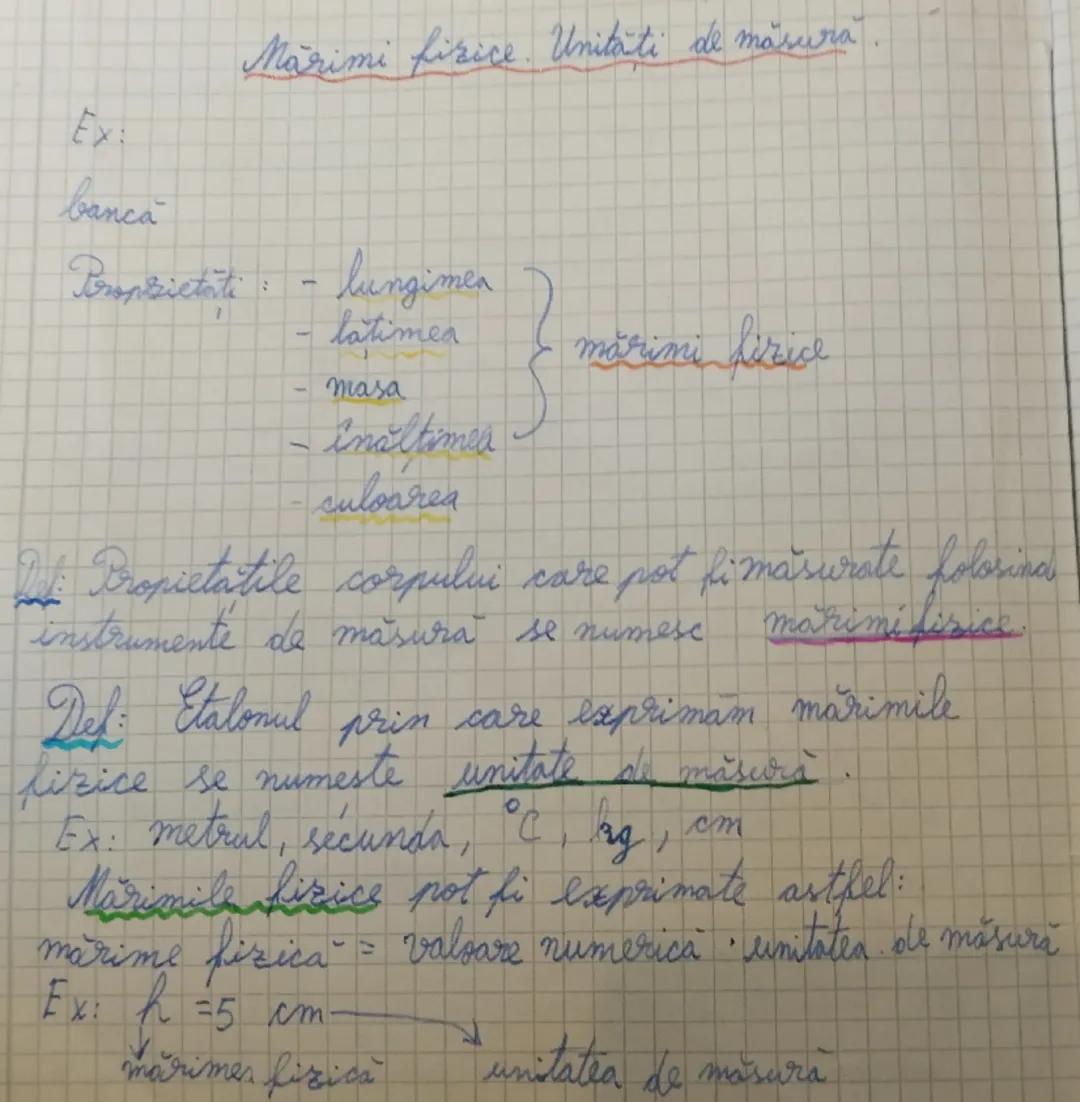 Mărimi fizice. Unităti de măsură.
Ex:
bancă
Proprietăți : - lungimea
- lățimea
mărimi fizice
- masa
- înălțimea
- culoarea
Def: Propietățile corpului care pot fi măsurate folosind
instrumente de măsură se numesc mărimi fizice.
Def: Etalonul prin care exprimăm mărimile
fizice se numește unitate de măsură.
Ex: metrul, secunda, °C, kg, cm
Mărimile fizice pot fi exprimate astfel:
mărime fizică = valoare numerică · unitatea de măsură
Ex: h = 5 cm
mărimea fizică unitatea de măsură